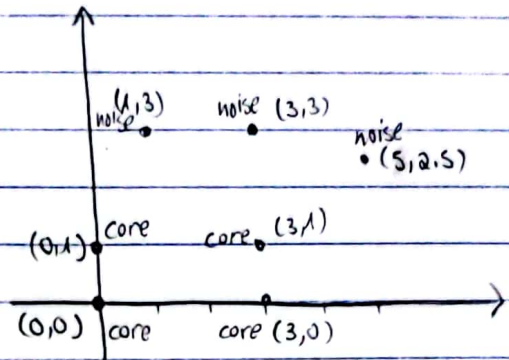 (1,3)
noise
noise (3,3)
noise
(5,2.5)
(0,1) core
core (3,1)
(0,0) core
core (3,0)